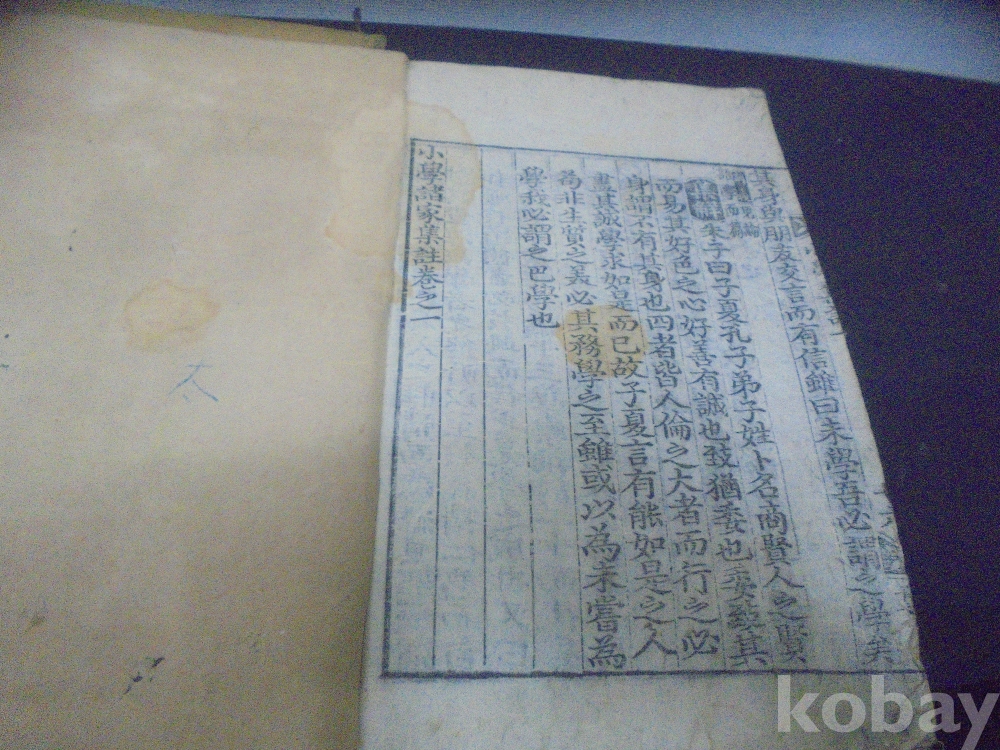 其身與朋友交言而有信雖曰未學吾必謂之學矣
朱子曰子夏孔子弟子姓卜名商賢人之賢
而易其好色之心好善有誠也致猶委也委致其
身謂不有其身也四者皆人倫之大者而行之必
盡其誠學求如是而已故子夏言有能如是之人
苟非生質之美必其務學之至雖或以為未嘗為
學我必謂之已學也
小學諸家集註卷之二
太
kobay